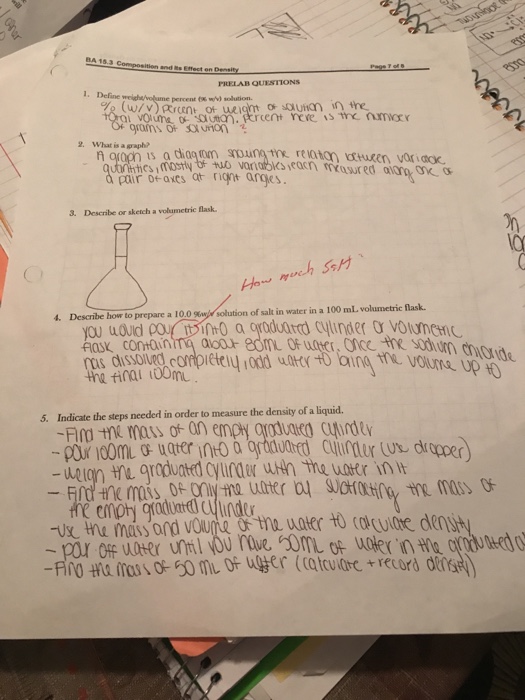 BA 15.3 Composition and Its Effect on Density Page 7 of 8
PRELAB QUESTIONS
1. Define weight/volume percent (% w/v) solution.
% (w/v) Percent of weight of solution in the
total volume of solution. Percent here is the number
of grams of solution ?
2. What is a graph?
A graph is a diagram showing the relation between variable
quantities, mostly of two variables, each measured along one of
a pair of axes at right angles.
3. Describe or sketch a volumetric flask.
How much salt
4. Describe how to prepare a 10.0 %w/v solution of salt in water in a 100 mL volumetric flask.
you would pour it into a graduated cylinder or volumetric
flask containing about 80ml of water. Once the sodium chloride
has dissolved completely, add water to bring the volume up to
the final 100mL.
5. Indicate the steps needed in order to measure the density of a liquid.
- Find the mass of an empty graduated cylinder
- pour 100mL of water into a graduated cylinder (use dropper)
- weigh the graduated cylinder with the water in it
- Find the mass of only the water by subtracting the mass of
the empty graduated cylinder
- Use the mass and volume of the water to calculate density
- pour off water until you have 50mL of water in the graduated
- Find the mass of 50 mL of water (calculate + record density)